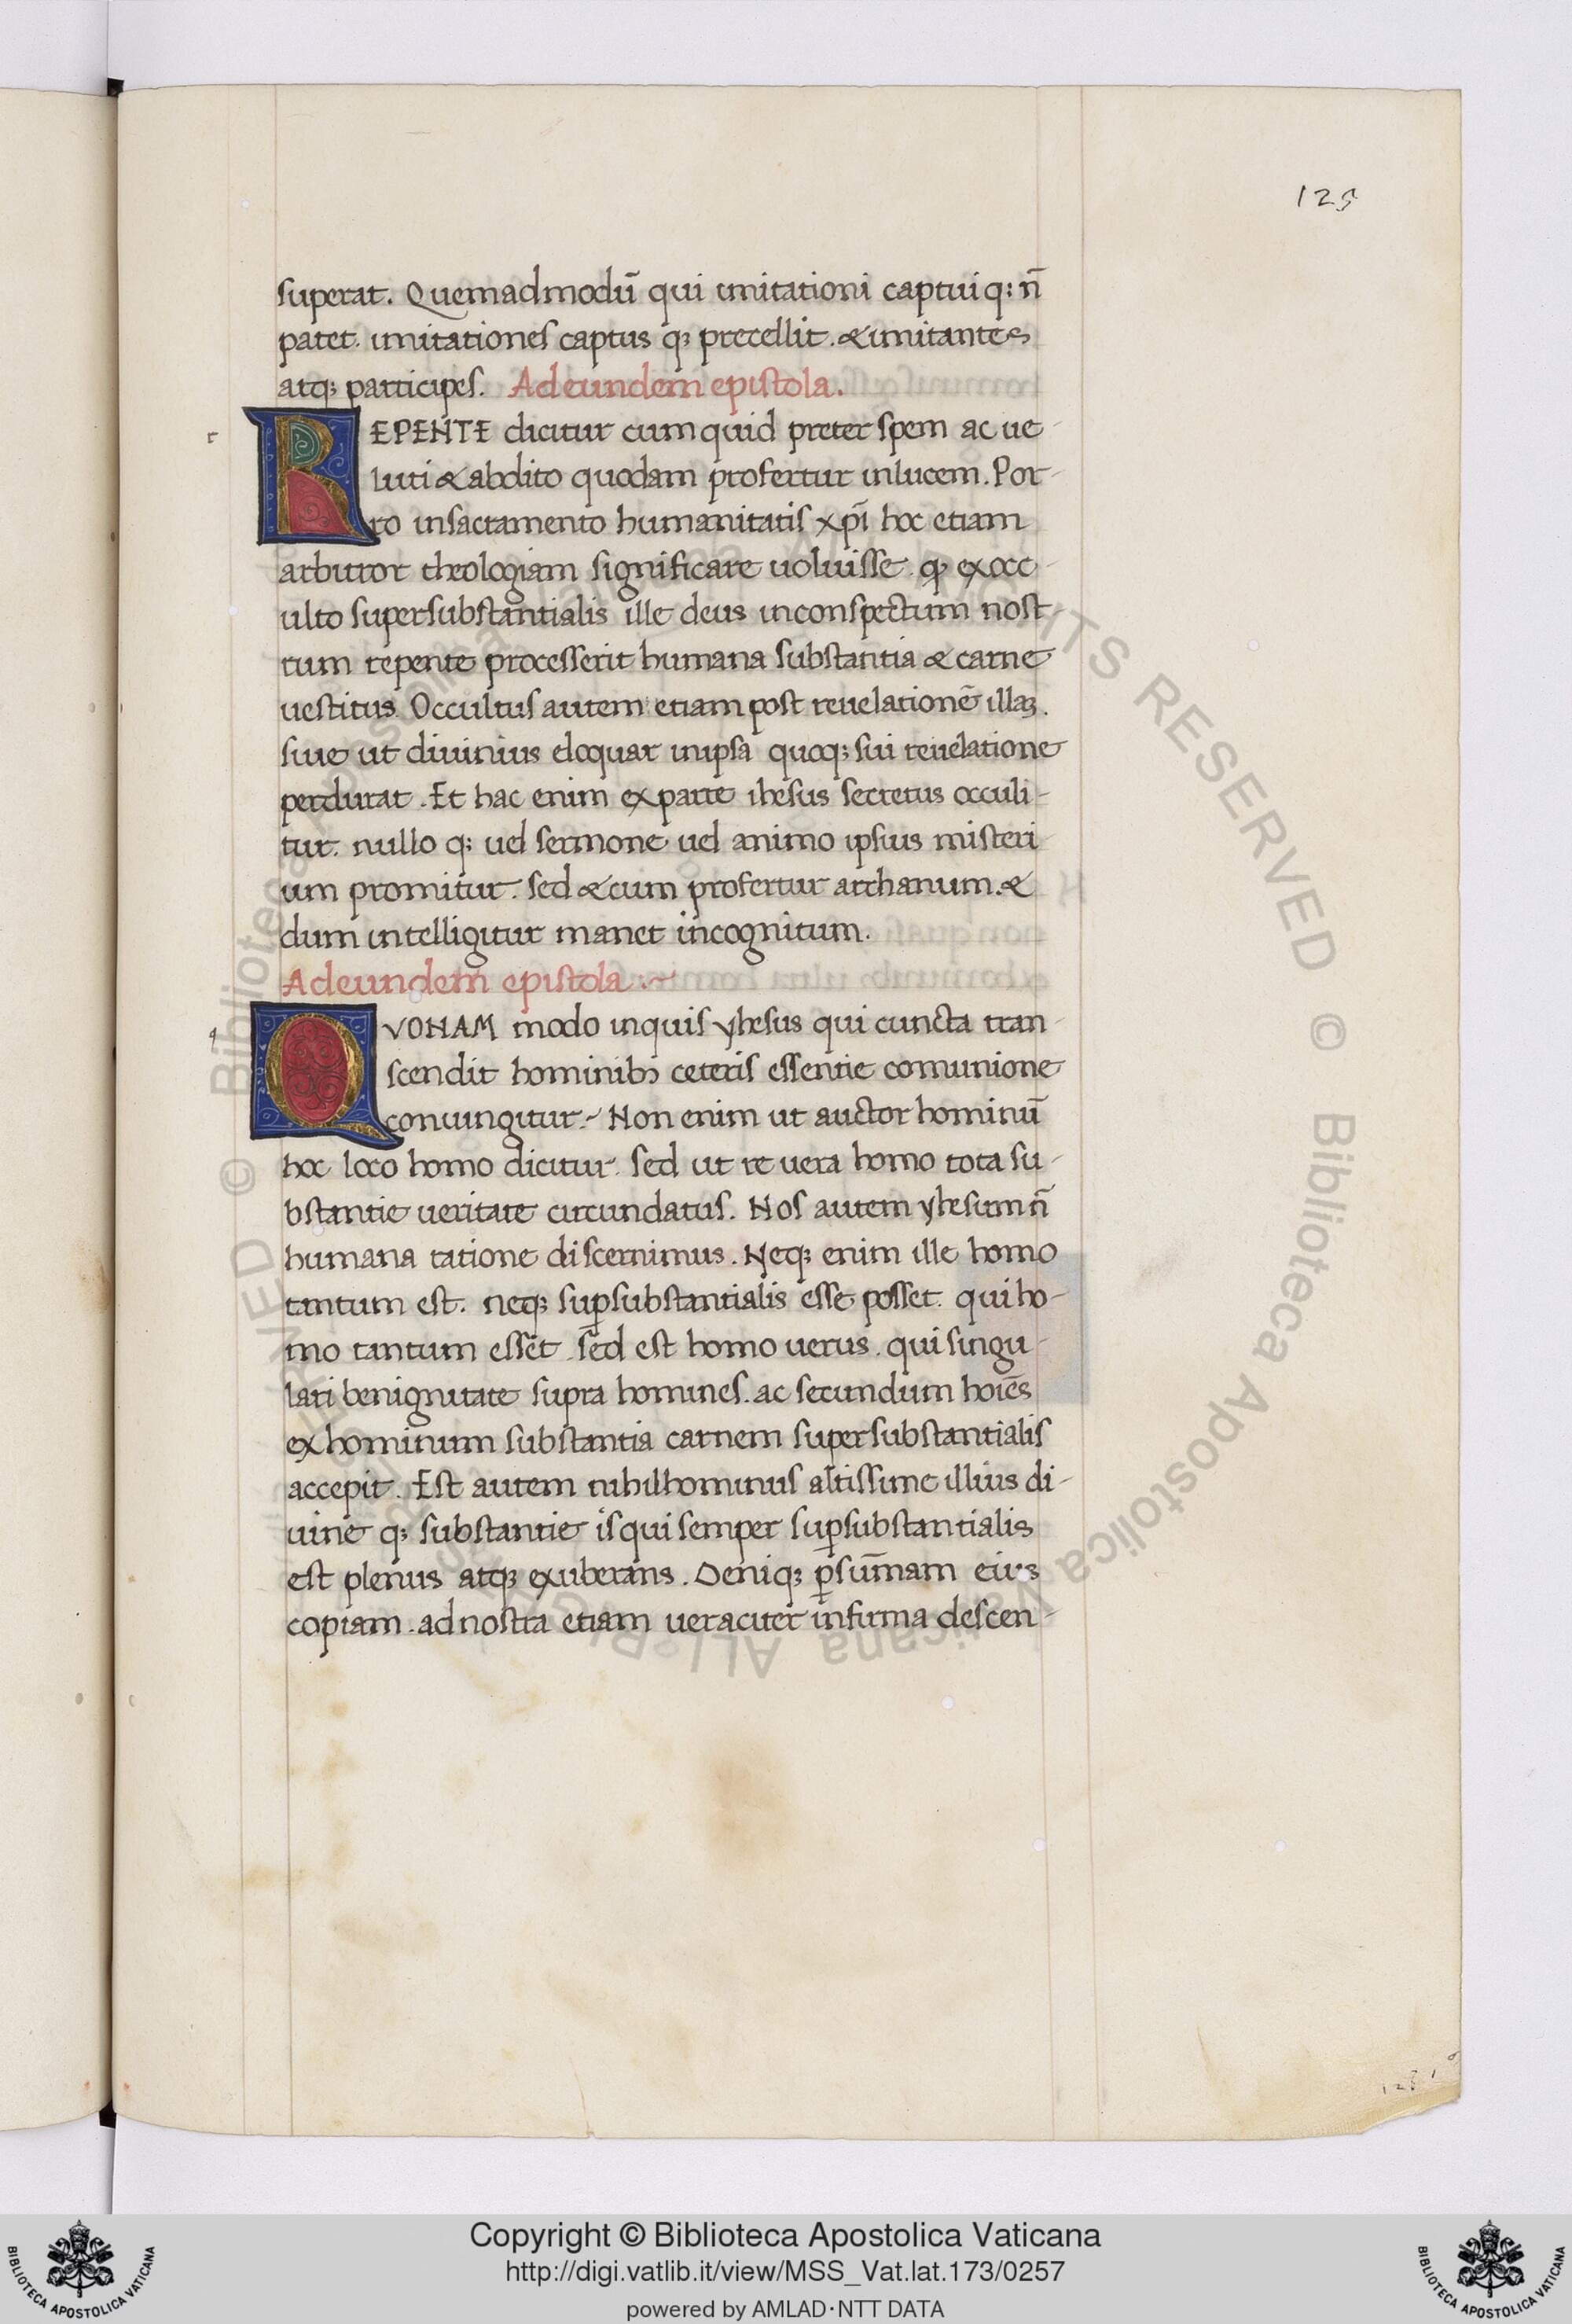 125
superat. Quemadmodū qui imitationi captui q; n̄
patet. imitationes captus q; precellit. & imitantes
atq; participes. Ad eundem epistola.
r
REPENTE dicitur cum quid preter spem ac ue-
luti & abdito quodam profertur in lucem. Por-
ro in sacramento humanitatis xp̄i hoc etiam
arbitror theologiam significare uoluisse. qđ ex occ-
ulto supersubstantialis ille deus in conspectum nost-
rum repente processerit humana substantia & carne
uestitus. Occultus autem etiam post reuelationē illaꝫ.
siue ut diuinius eloquar in ipsa quoq; sui reuelatione
perdurat. Et hac enim ex parte ihesus secretus occuli-
tur. nullo q; uel sermone uel animo ipsius misteri-
um promitur. sed & cum profertur archanum. &
dum intelligitur manet incognitum.
Ad eundem epistola :~
q
QVONAM modo inquis yhesus qui cuncta tran-
scendit hominibꝫ ceteris essentie comunione
coniungitur:~ Non enim ut auctor hominū
hoc loco homo dicitur. sed ut re uera homo tota su-
bstantie ueritate circundatus. Nos autem yhesum n̄
humana ratione discernimus. Neq; enim ille homo
tantum est. neq; suꝑsubstantialis esse posset. qui ho-
mo tantum esset. sed est homo uerus. qui singu-
lari benignitate supra homines. ac secundum hoīēs
ex hominum substantia carnem supersubstantialis
accepit. Est autem nihilhominus altissime illius di-
uine q; substantie is qui semper suꝑsubstantialis
est plenus atq; exuberans. Deniq; ꝑ sūmam eius
copiam. ad nostra etiam ueraciter infirma descen-
Copyright © Biblioteca Apostolica Vaticana
http://digi.vatlib.it/view/MSS_Vat.lat.173/0257
powered by AMLAD·NTT DATA
BIBLIOTECA APOSTOLICA VATICANA
BIBLIOTECA APOSTOLICA VATICANA